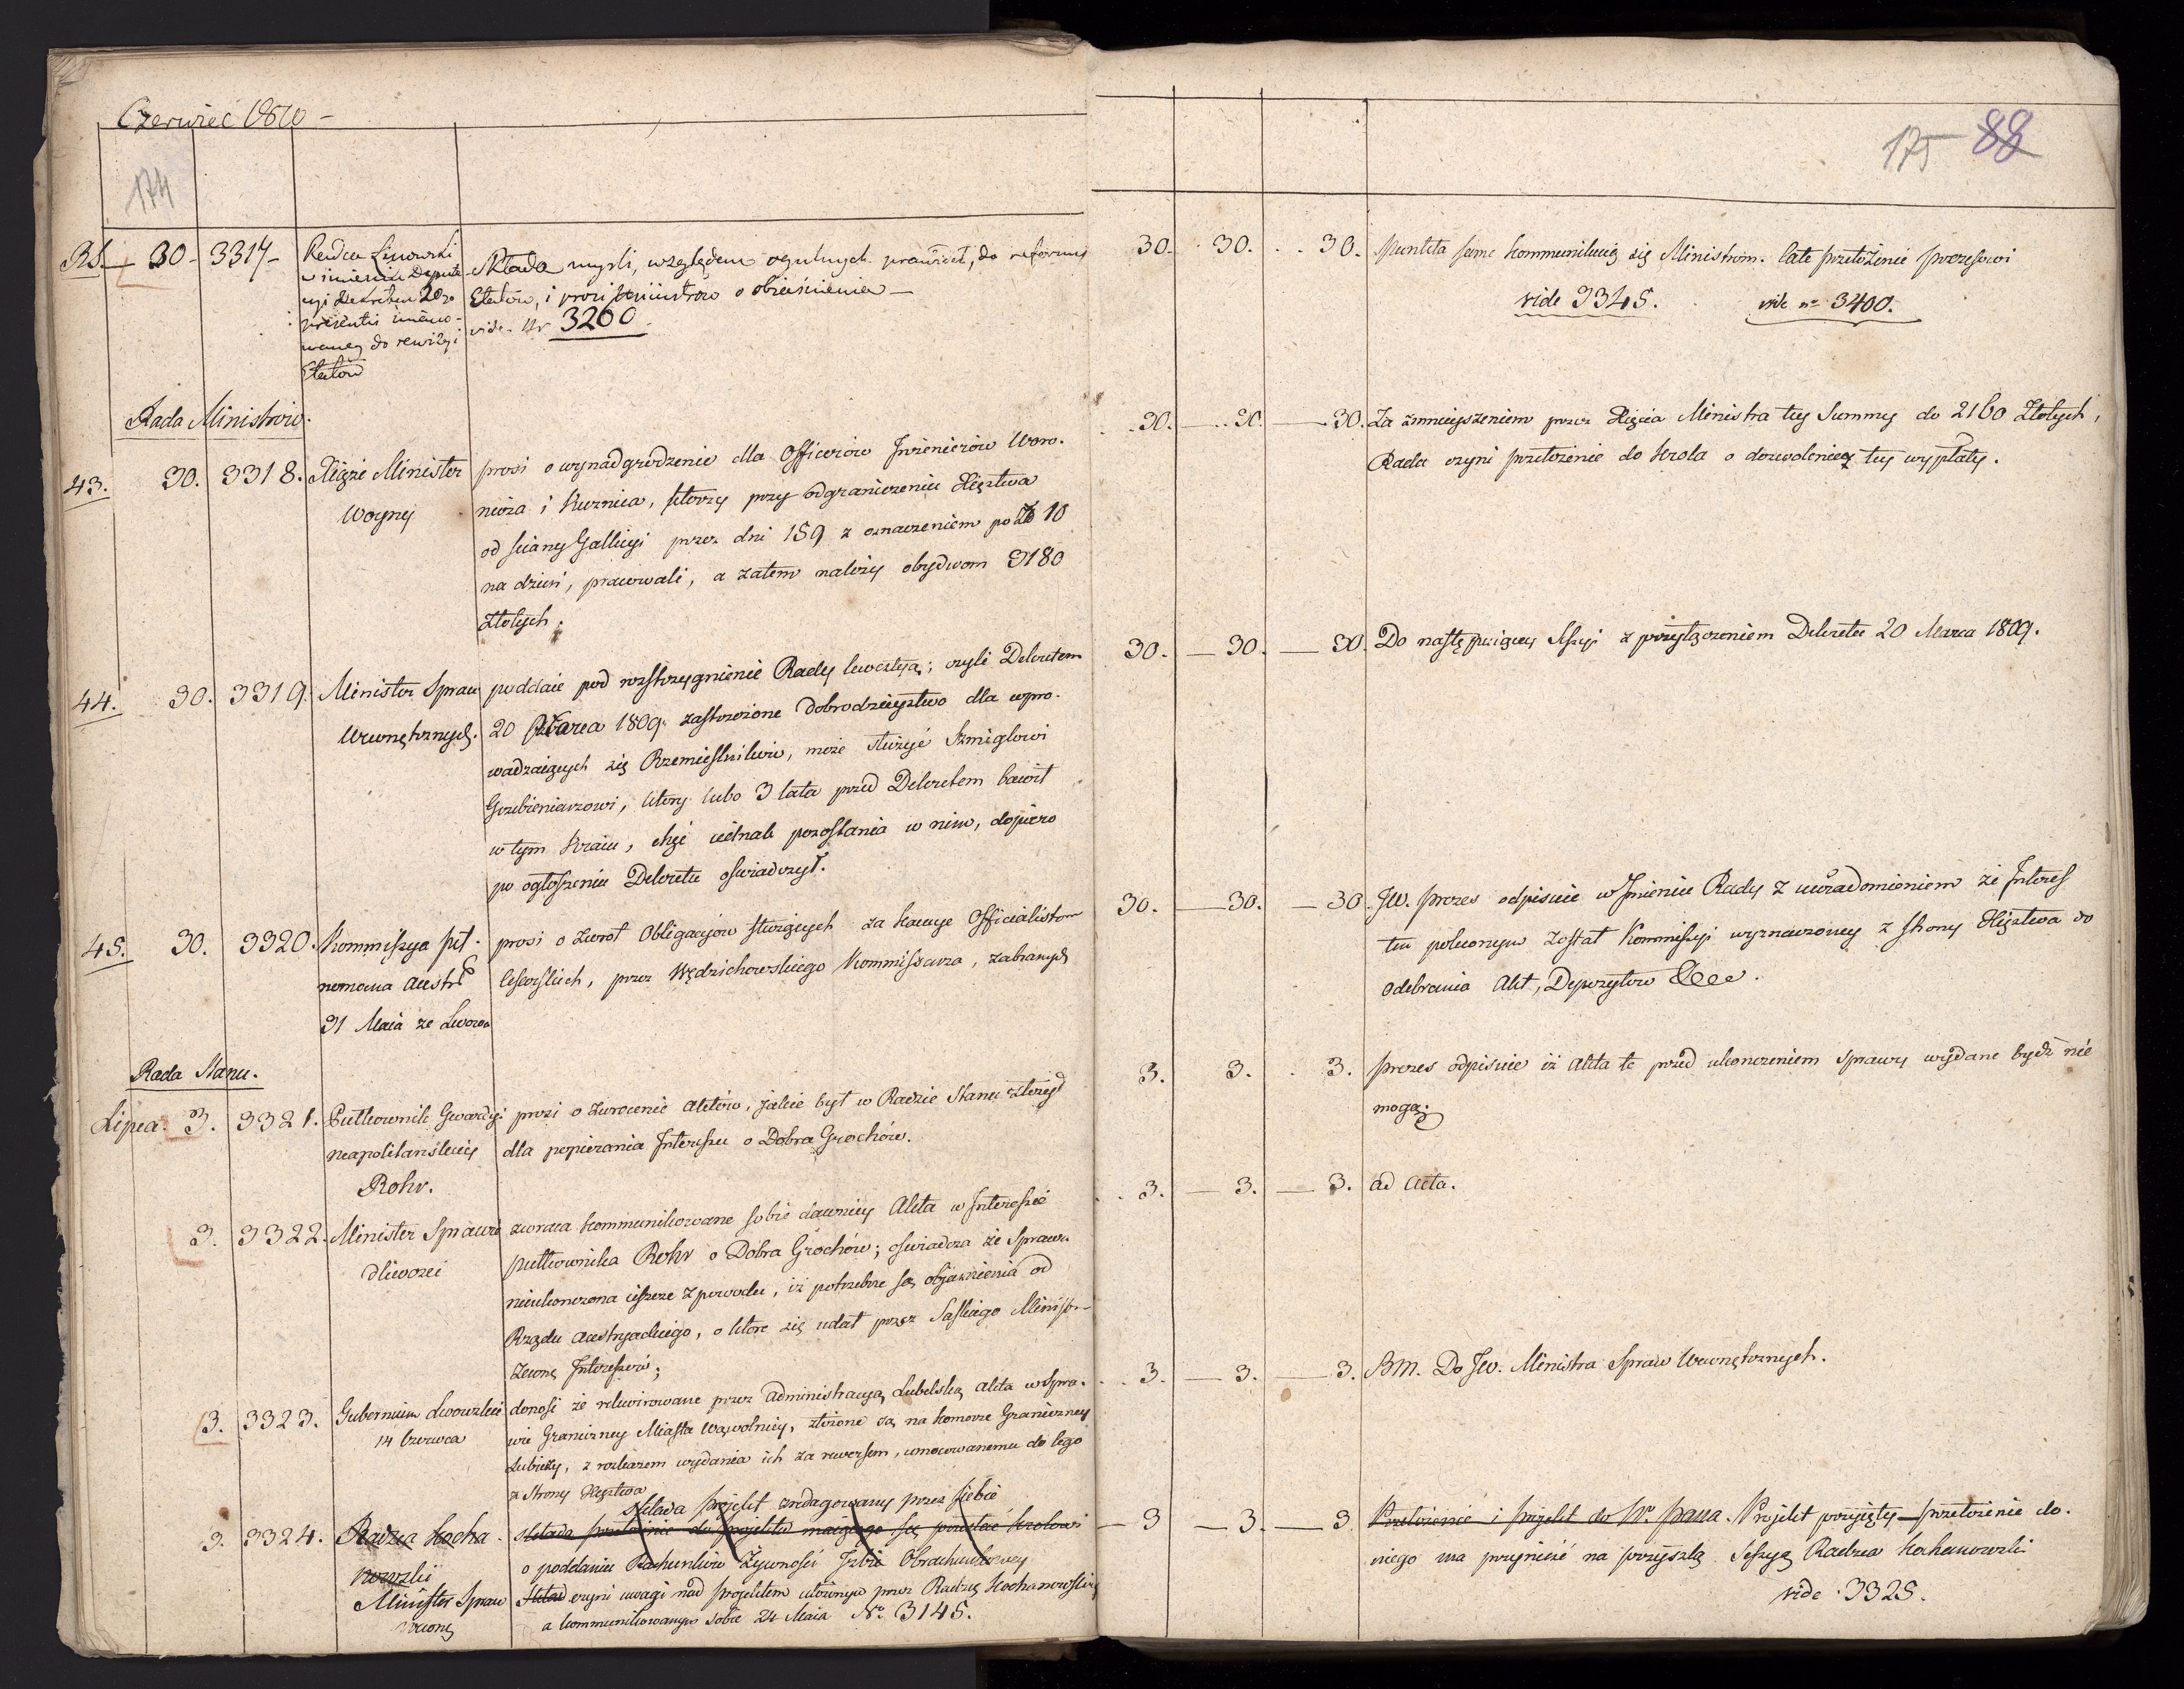 Czerwiec 1810 –
174
RS. 30 – 3317 –
Radca Linowski
w imieniu Deputa-
cyi Dekretem 20
praesentis miano-
waney do rewizyi
Etatow
Składa mysli, względem ogulnych prawideł, do reformy
Etatów, i prosi Ministrów o obiasnienie –
vide Nr 3260
Rada Ministrow.
43. 30. 3318. Xiąże Minister
Woyny
prosi o wynadgrodzenie dla Officerow Inżenierów Woro-
nicza i Kuznica, ktorzy przy odgraniczeniu Xięztwa
od sciany Gallicyi przez dni 159 z oznaczeniem po Zł 10
na dzień, pracowali, a zatem należy obydwom 3180
Złotych.
44. 30. 3319. Minister Spraw
Wewnętrznych.
poddaie pod rozstrzygnienie Rady kwestyą; czyli Dekretem
20 Marca 1809. zastrzeżone dobrodzieystwo dla wpro-
wadzaiących się Rzemieslnikow, może służyć Szmiglowi
Grzebieniarzowi, ktory lubo 3 lata przed Dekretem bawił
w tym Kraiu, chęć iednak pozostania w nim, dopiero
po ogłoszeniu Dekretu oswiadczył.
45. 30. 3320. Kommissya peł-
nomocna Austr
31 Maia ze Lwowa
prosi o zwrot Obligacyow służących za kaucye Officialistom
Cesarskich, przez Wędzichowskiego Kommissarza, zabranych
Rada Stanu.
Lipca. 3. 3321. Pułkownik Gwardyi
neapolitańskiey
Rohr.
prosi o zwrocenie Aktów, jakie był w Radzie Stanu złożył
dla popierania Interessu o Dobra Grochów.
3. 3322. Minister Sprawie
dliwosci
zwraca kommunikowane sobie dawniey Akta w Interessie
pułkownika Rohr o Dobra Grochów; oswiadcza że Sprawa
nieukonczona ieszcze z powodu, iż potrzebne są objasnienia od
Rządu Austryackiego, o ktore się udał przez Saskiego Ministra
Zewnę Interessów;
3. 3323. Gubernium Lwowskie
14 Czerwca
donosi że rekwirowane przez Administracyą Lubelską Akta w Spra-
wie Graniczney Miasta Wąwolnicy, złożone są na komorze Graniczney
Lubieży, z rozkazem wydania ich za rewersem, umocowanemu do tego
ze Strony Xięztwa
3. 3324. Radzca Kocha-
nowski
Minister Spraw
wewnę
składa projekt zredagowany przez siebie
składa przełożenie do projektu maiącego się posłać Krolowi
o poddaniu Rachunków Żywności Izbie Obrachunkowey
Skład czyni uwagi nad projektem ułożonym przez Radzcę Kochanowskiego
a kommunikowanym sobie 24 Maia Nr. 3145.
175 88
30. 30. 30. Punkta same kommunikuią się Ministrom. całe przełożenie prezesowi
vide 3345. vide nr 3400.
30. 30. 30. Za zmnieyszeniem przez Xięcia Ministra tey Summy do 2160 Złotych,
Rada czyni przełożenie do Krola o dozwolenie tey wypłaty.
30. 30. 30. Do następuiącey Sessyi z przyłączeniem Dekretu 20 Marca 1809.
30. 30. 30. JW. prezes odpisuie w Imieniu Rady z uwiadomieniem że Interes
ten poleconym został Kommissyi wyznaczoney z strony Xięztwa do
odebrania Akt, Depozytow &c.
3. 3. 3. prezes odpisuie iż Akta te przed ukonczeniem sprawy wydane bydź nie
mogą.
3. 3. 3. ad Acta.
3. 3. 3. BM. Do JW. Ministra Spraw Wewnętrznych.
3 3. 3. Przełożenie i projekt do N. Pana. Projekt przyięty – przełożenie do-
niego ma przynieść na przyszłą Sessyą Radzca Kochanowski
vide 3325.